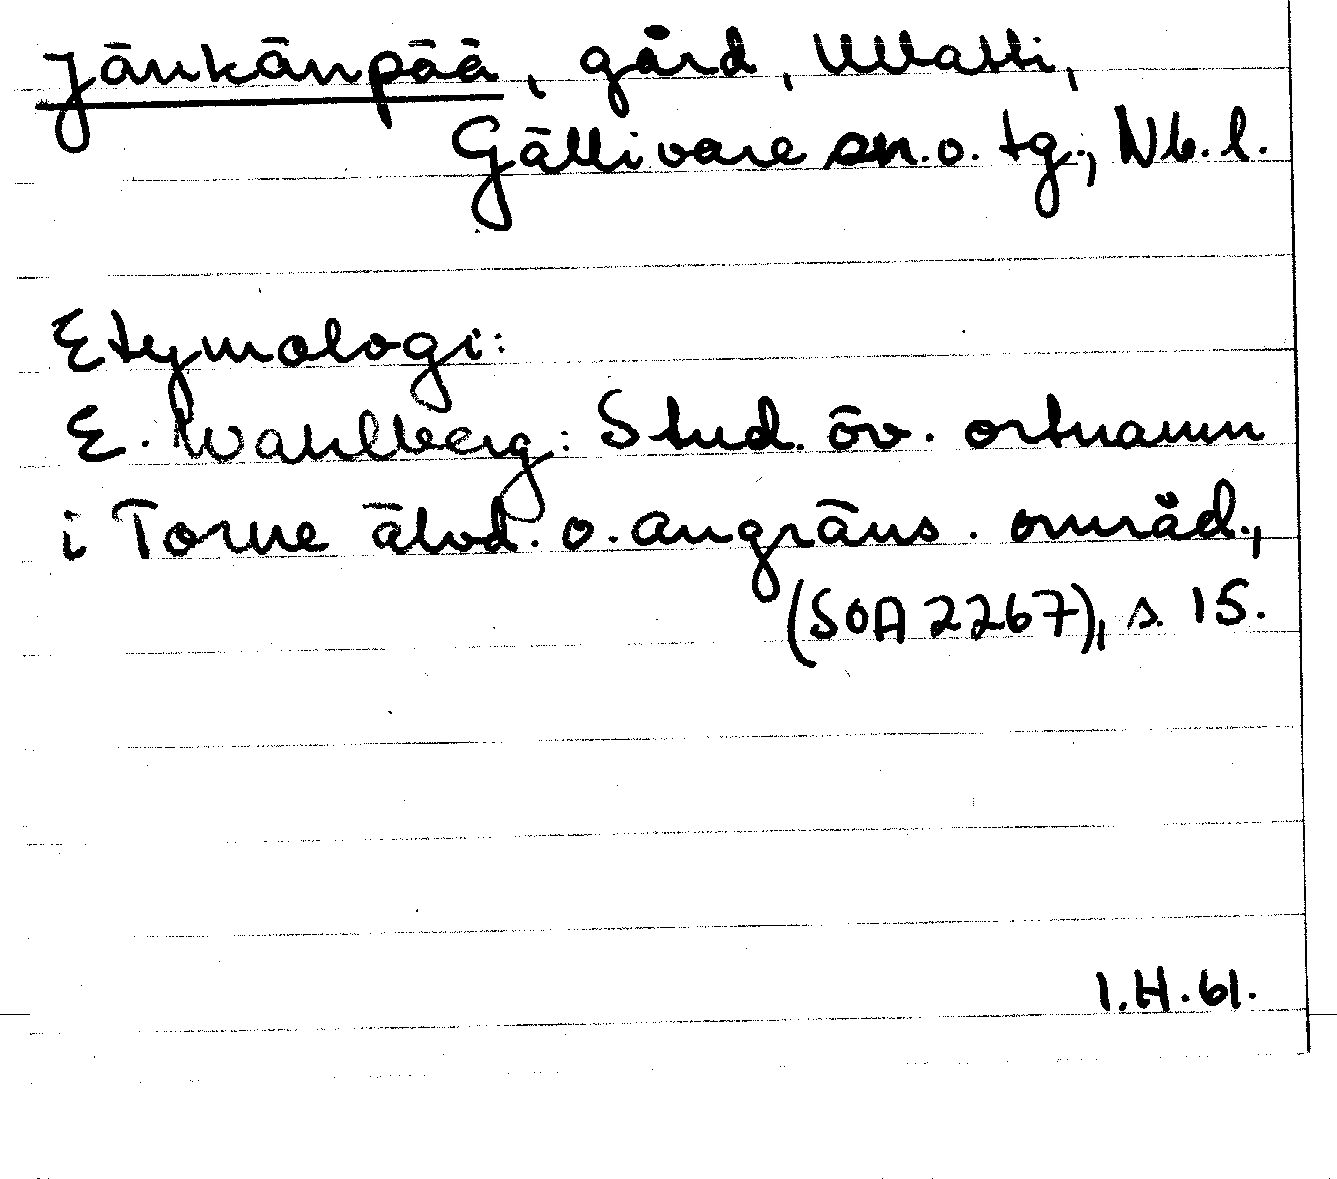 Jänkänpää, gård, Ullatti,
Gällivare sn. o. tg., Nb. l.
Etymologi:
E. Wahlberg: Stud. öv. ortnamn
i Torne älvd. o. angräns. områd.,
(SOA 2267), s. 15.
I.H. 61.